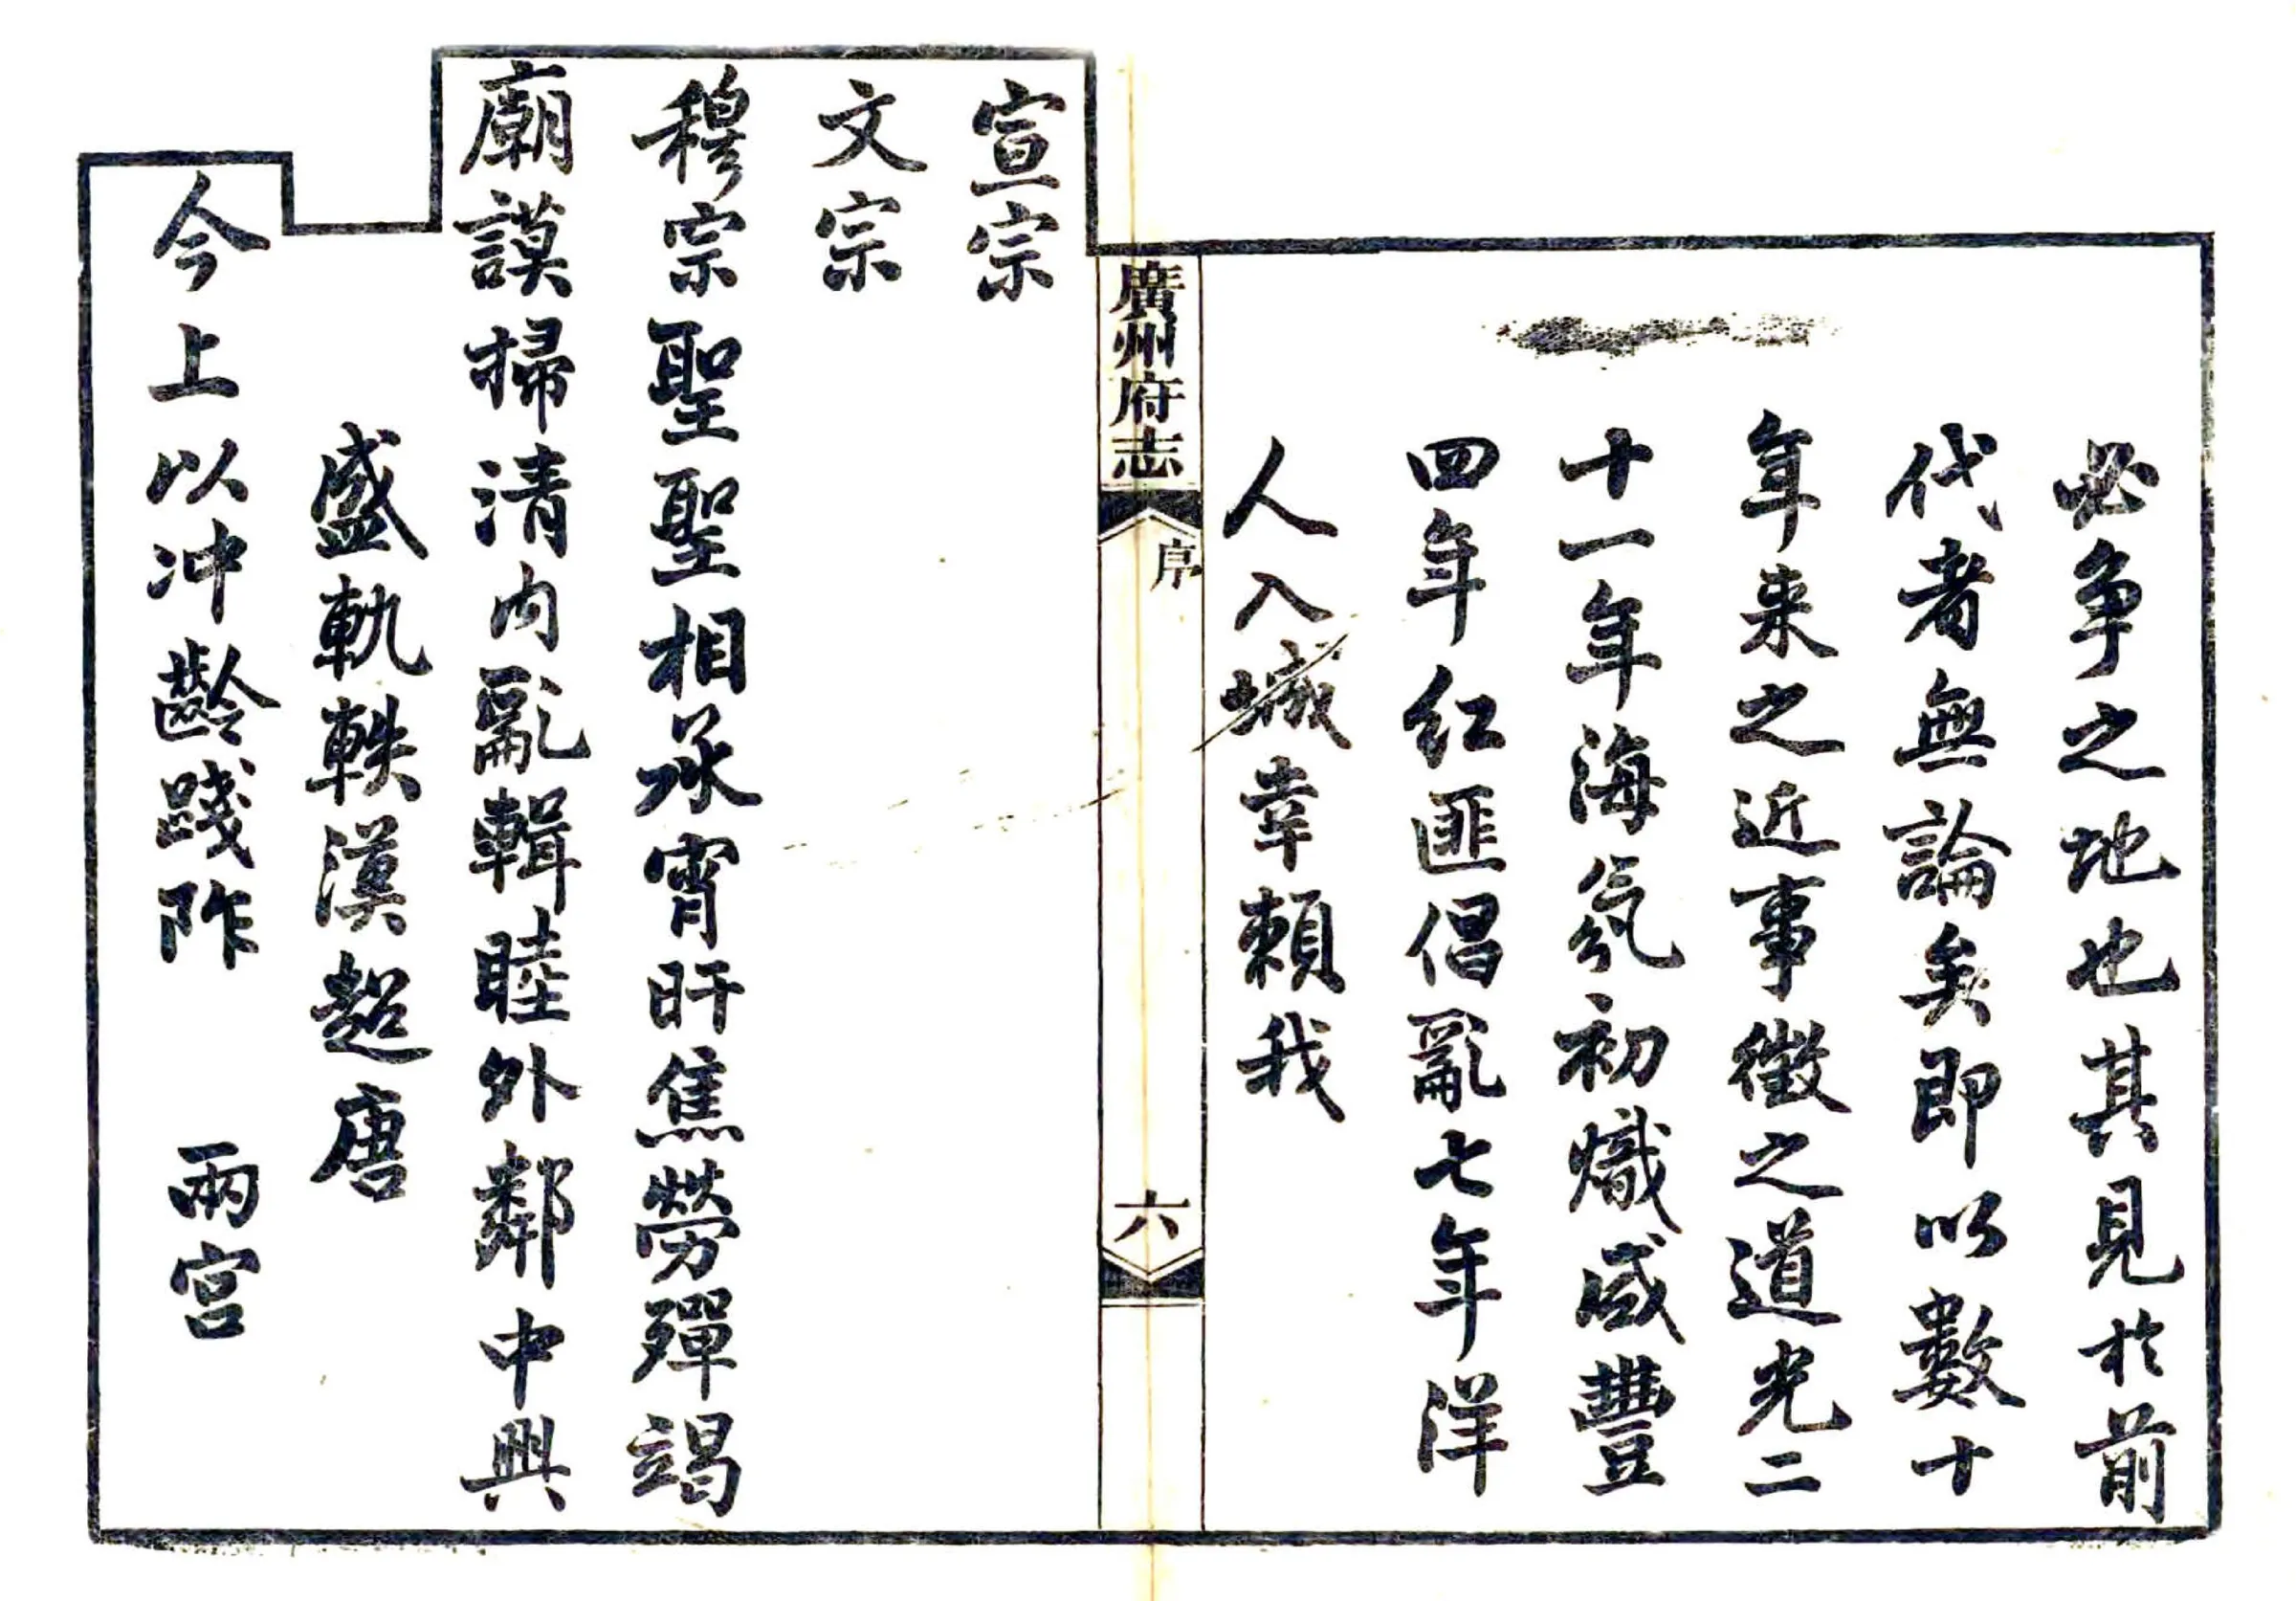 必争之地也其見於前
代者無論矣即以數十
年来之近事徵之道光二
十一年海氛初熾咸豐
四年紅匪倡亂七年洋
人入城幸賴我
廣州府志
序
六
宣宗
文宗
穆宗聖聖相承宵旰焦勞殫竭
廟謨掃清内亂輯睦外鄰中興
盛軌軼漢超唐
今上以冲齡踐阼 兩宫